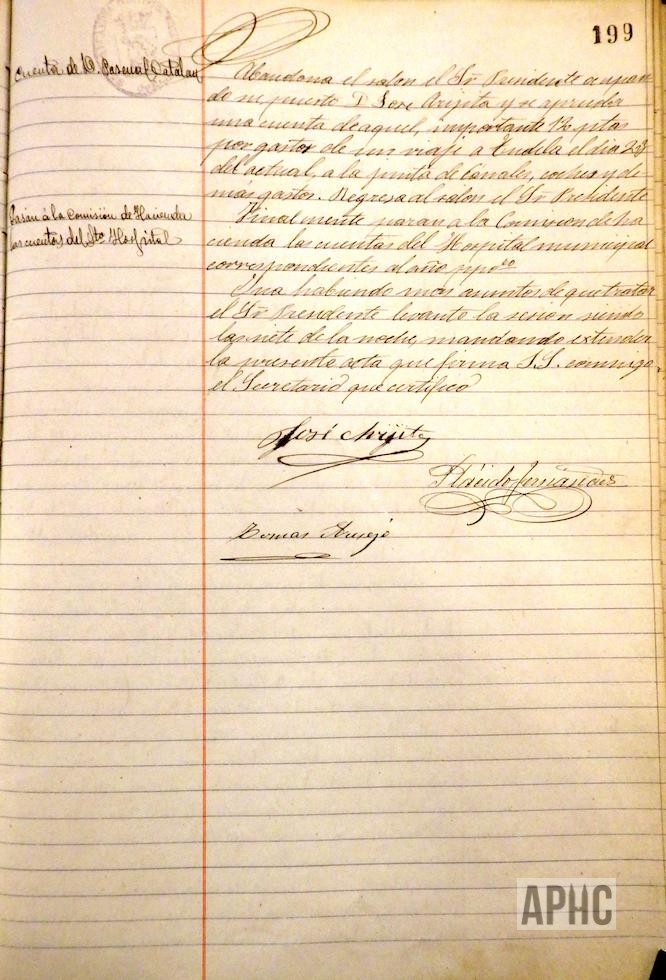 199
Cuenta de D. Pascual Catalan
Abandona el salon el Sr Presidente ocupan
do su puesto D José Arijita y se aprueba
una cuenta de aquel, importante 12 ptas
por gastos de un viaje a Tudela el dia 23
del actual, a la junta de Canales, coches y de
mas gastos. Regresa al salon el Sr Presidente
Pasan á la Comisión de Hacienda
las cuentas del Sto Hospital
Finalmente pasan a la Comision de ha
cienda las cuentas del Hospital municipal
correspondientes al año ppdo
I no habiendo mas asuntos de que tratar
el Sr Presidente levanto la sesion siendo
las siete de la noche, mandando extender
la presente acta que firma S.S. conmigo
el Secretario que certifico
José Arijita
Plácido Fernández
Tomas
APHC